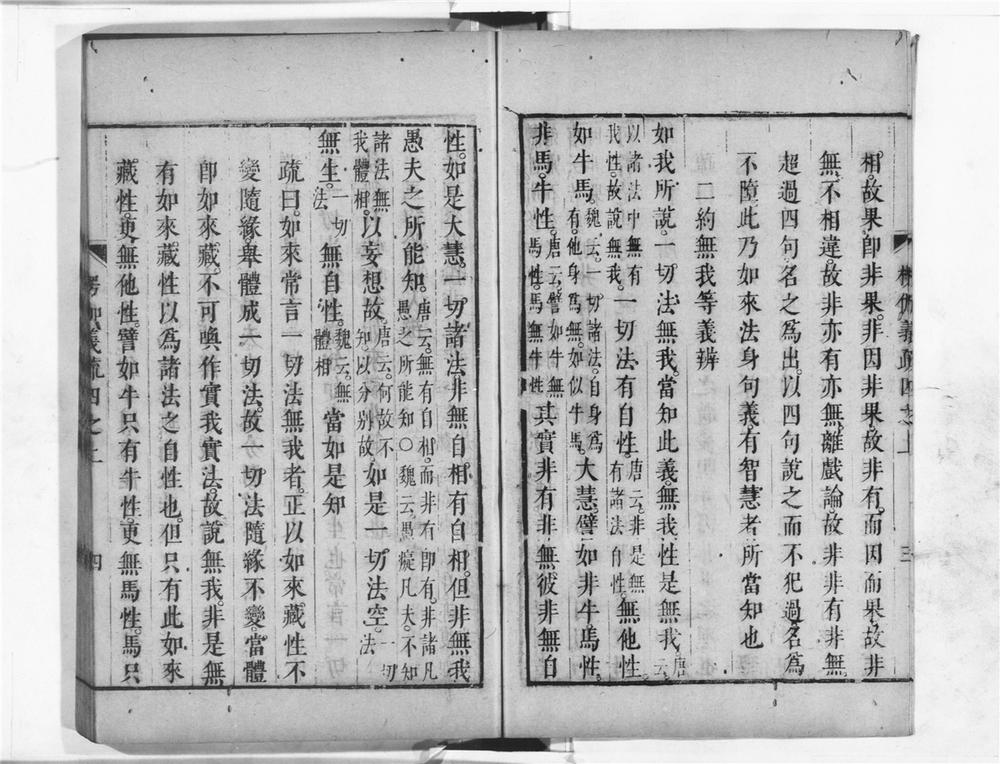 相。故果。卽非果。非因非果。故非有。而因而果。故非
無。不相違。故非亦有亦無。離戲論。故非非有非無。
超過四句。名之爲出。以四句說之而不犯過。名爲
不墮。此乃如來法身句義。有智慧者。所當知也
二約無我等義辨
如我所說。一切法無我。當知此義。無我性是無我。唐云。
以諸法中無有我性。故說無我。一切法有自性。唐云。非是無有諸法自性。無他性。
如牛馬。魏云。一切諸法。自身爲有。他身爲無。如似牛馬。大慧。譬如非牛馬性。
非馬牛性。唐云。譬如牛無馬性。馬無牛性。其實非有非無。彼非無自
性。如是大慧。一切諸法。非無自相。有自相。但非無我
愚夫之所能知。唐云。無有自相。而非有卽有。非諸凡愚之所能知○魏云。愚癡凡夫。不知
諸法無我體相。以妄想故。唐云。何故不知。以分別故。如是一切法空。一切法
無生。一切法無自性。魏云。無體相當如是知
疏曰。如來常言一切法無我者。正以如來藏性不
變隨緣。舉體成一切法。故一切法隨緣不變。當體
卽如來藏。不可喚作實我實法。故說無我。非是無
有如來藏性以爲諸法之自性也。但只有此如來
藏性。更無他性。譬如牛只有牛性。更無馬性。馬只
楞伽義疏四之上 三
楞伽義疏四之上 四